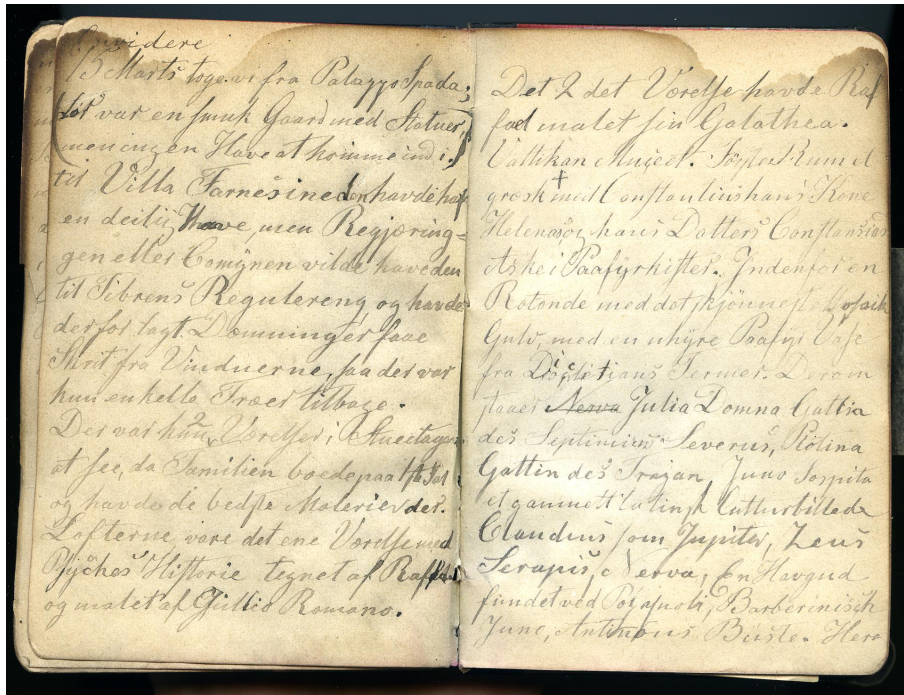 videre
15 Marts toge vi fra Palazzo Spada;
var en smuk Gaard med Statuer,
men ingen Have at komme ind i.
til Villa Farnesine den havde haft
en deilig Have, men Regjerin=
gen eller Comynen vilde have den
til Tibrens Regulereng og havde
derfor lagt Dæmninger faae
Skrit fra Vinduerne, saa der var
kun enkelte Træer tilbage.
Der var kun 2 Værelser i Stueetagen
at see, da Familien boede paa 1ste Sal
og havde de bedste Malerier der.
Lofterne vare det ene Værelse med
Psyches Historie tegnet af Raffael
og malet af Gjulio Romano.
Det 2 det Værelse havde Raf
fael malet sin Galathea.
Vattikan Museet. Første Rum et
græsk † med Constantins hans Kone
Helenas og hans Datters Constansias
Aske i Paafyrkister. Indenfor en
Rotonde med det skjønneste Mosaik
Gulv, med en uhyre Paafyr Vase
fra Diocletians Termer. Derom
staaer Nerva Julia Domna Gattin
des Septimius Severus, Plotina
Gattin des Trajan, Juno Sospita
et gammelt latinsk Cultusbillede
Claudius som Jupiter, Zeus
Serapis, Nerva, En Havgud
fundet ved Pozzuoli, Barberinisch
Juno, Antinous Büste. Hera